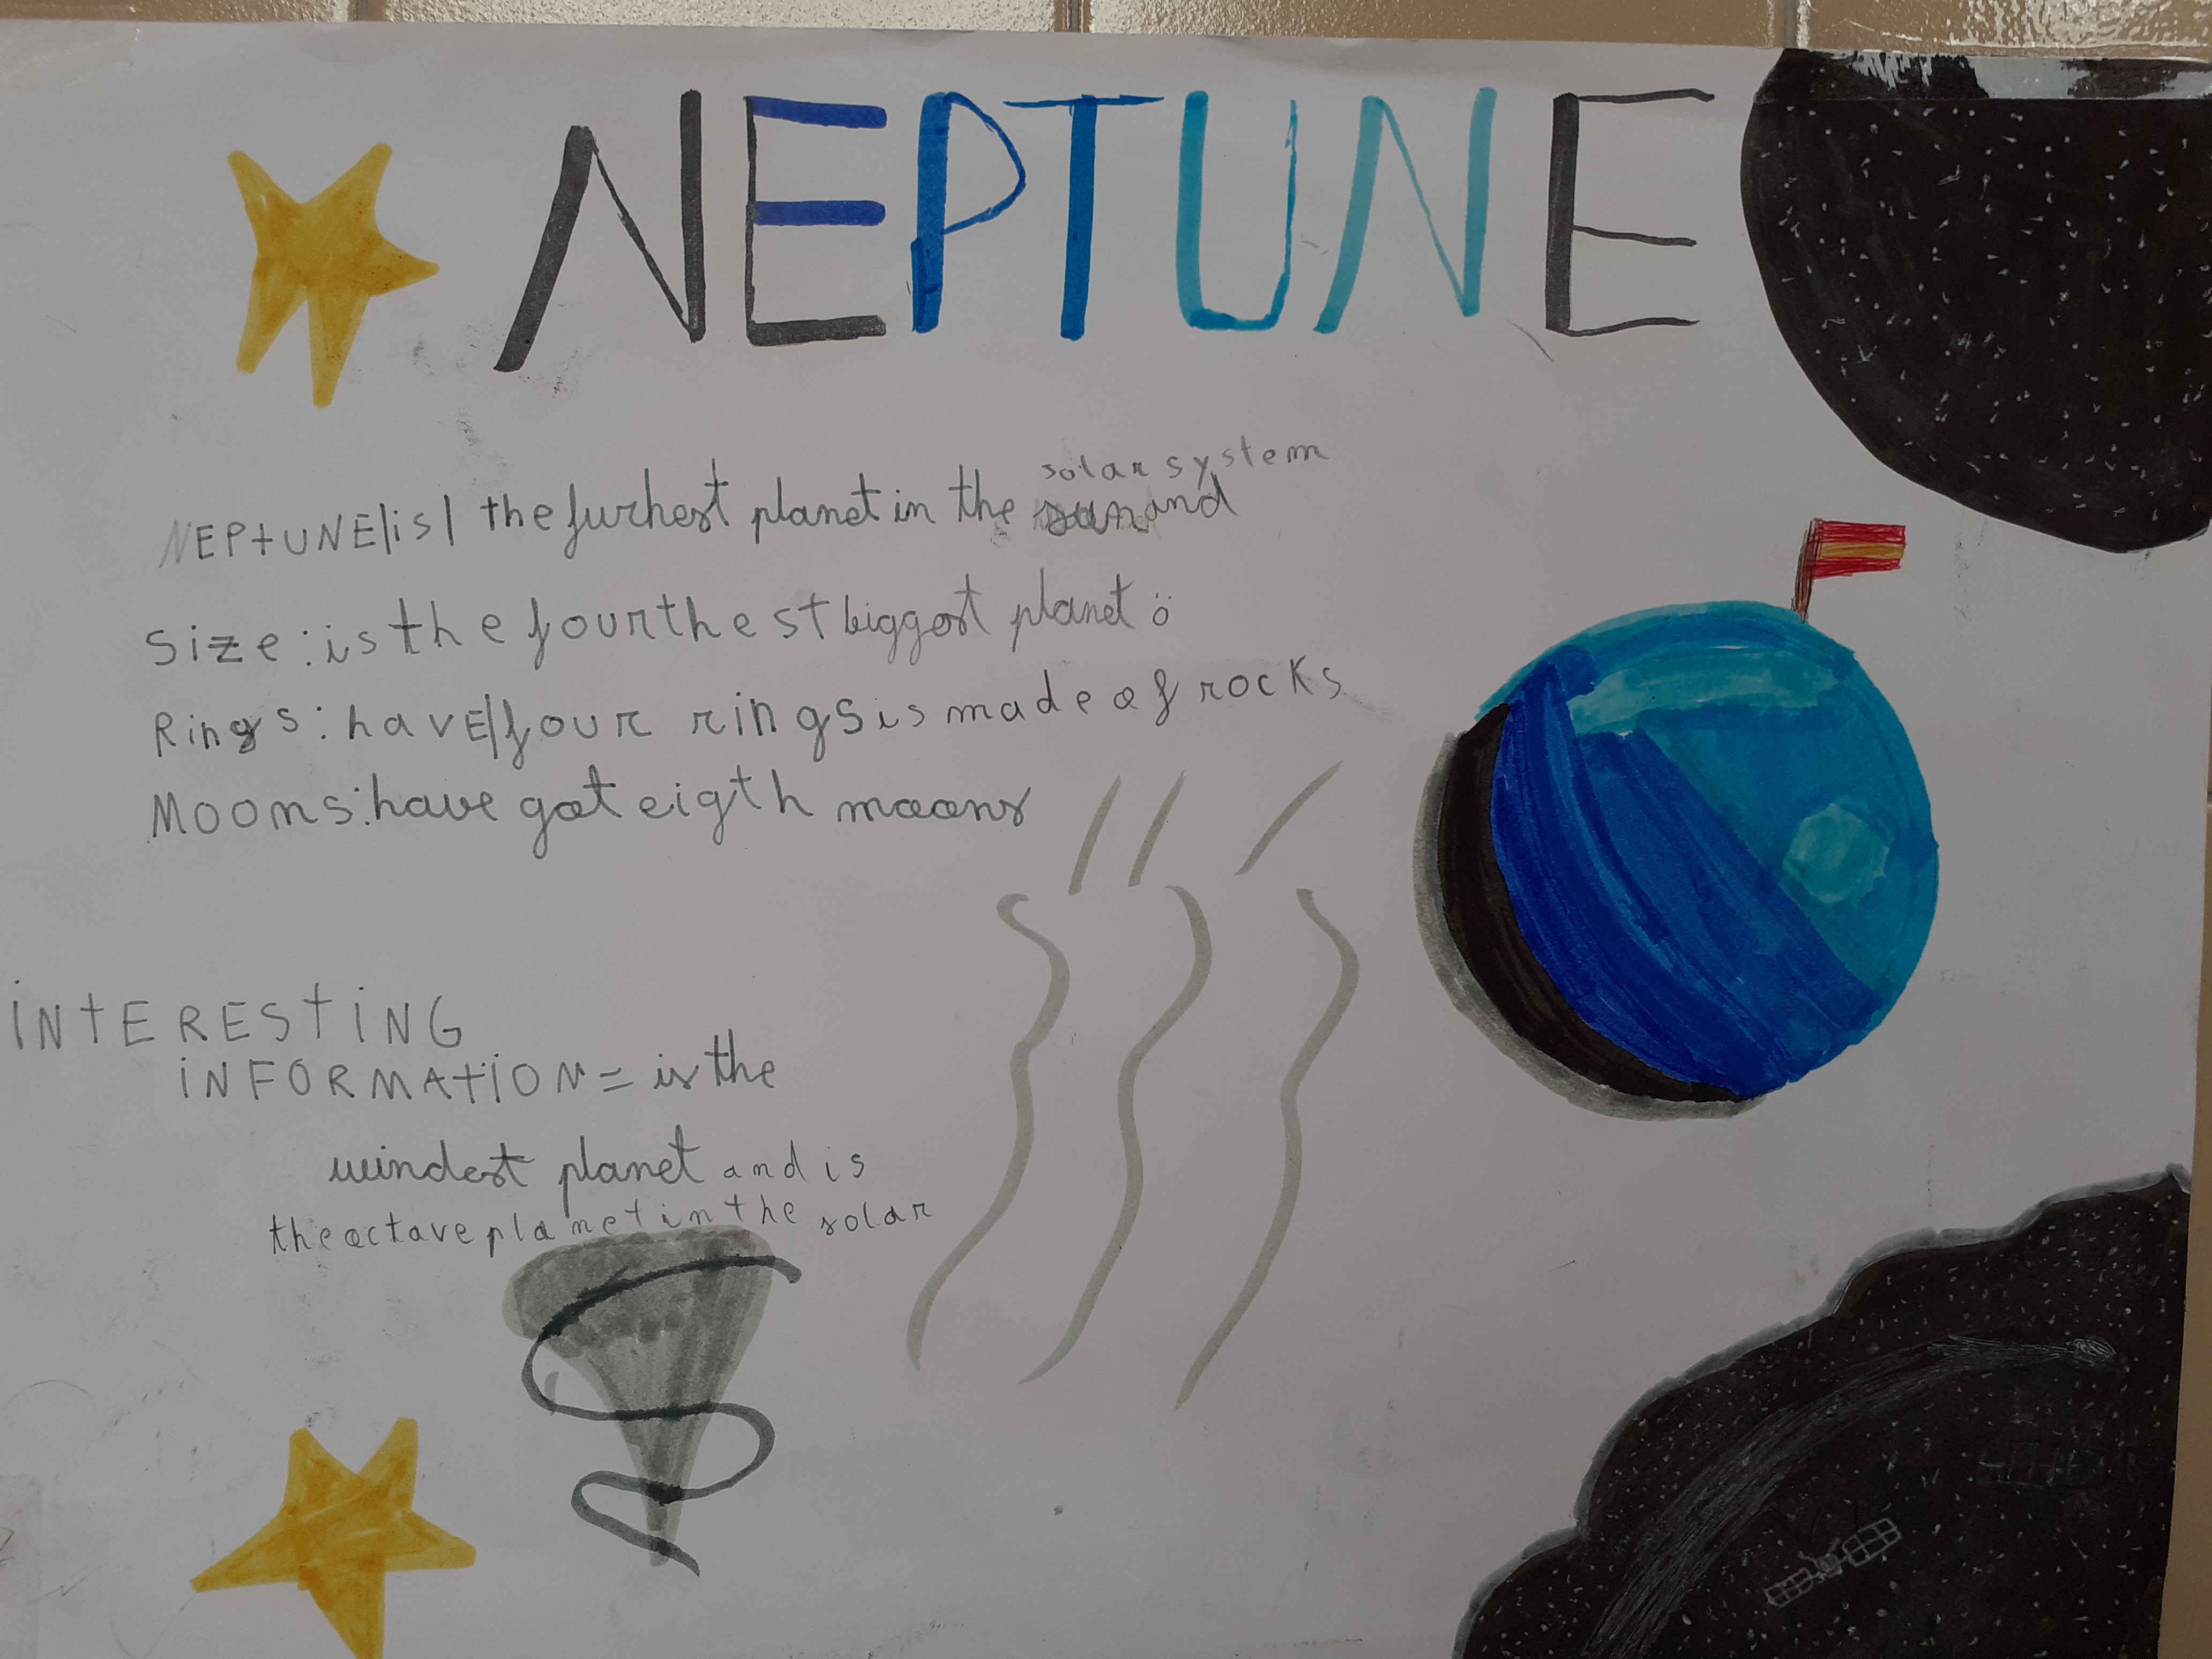 NEPTUNE
solar system
NEPtUNE is the furhest planet in the and
Size: is the fourthest biggest planet
Rings: havE four rings is made of rocks
Moons: have got eigth moons
iNtEREStiNG
iNFORMAtiON = is the
windest planet and is
the octave planet in the solar